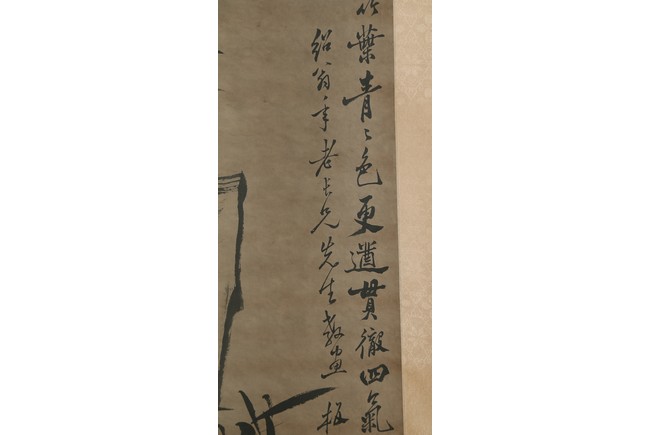 竹葉青〻色更遒貫徹四氣
紹翁年老長兄先生教畫 板